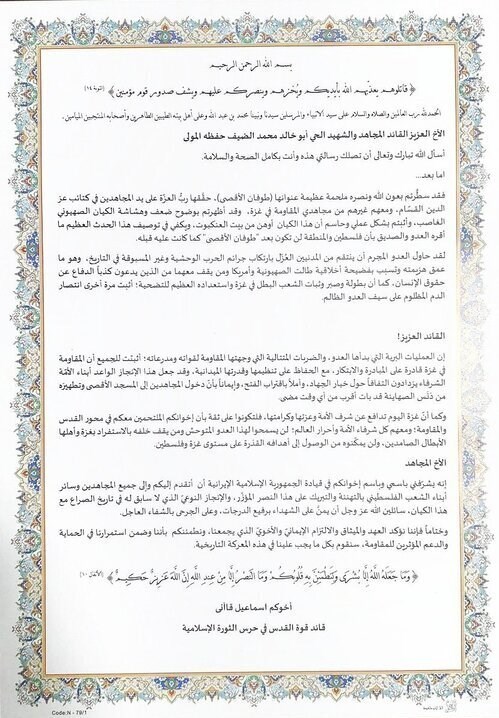 بسم الله الرحمن الرحيم
﴿ قاتلوهم يعذبهم الله بأيديكم ويخزهم وينصركم عليهم ويشف صدور قوم مؤمنين ﴾ (التوبة ١٤)
الحمدلله رب العالمين والصلاة والسلام على سيد الانبياء والمرسلين سيدنا ونبينا محمد بن عبد الله وعلى أهل بيته الطيبين الطاهرين وأصحابه المنتجبين الميامين.
الأخ العزيز القائد المجاهد والشهيد الحي أبو خالد محمد الضيف حفظه المولى
أسأل الله تبارك وتعالى أن تصلك رسالتي هذه وأنت بكامل الصحة والسلامة.
اما بعد...
فقد سطّرتم بعون الله ونصره ملحمة عظيمة عنوانها (طوفان الأقصى)، حقّقها ربُّ العزّة على يد المجاهدين في كتائب عز
الدين القسّام، ومعهم غيرهم من مجاهدي المقاومة في غزة، وقد أظهرتم بوضوح ضعف وهشاشة الكيان الصهيوني
الغاصب، وأثبتم بشكل عملي وحاسم أن هذا الكيان أوهن من بيت العنكبوت، ويكفي في توصيف هذا الحدث العظيم ما
أقره العدو والصديق بأن فلسطين والمنطقة لن تكون بعد "طوفان الأقصى" كما كانت عليه قبله.
لقد حاول العدو المجرم أن ينتقم من المدنيين العُزّل بارتكاب جرائم الحرب الوحشية وغير المسبوقة في التاريخ، وهو ما
عمق هزيمته وتسبب بفضيحة أخلاقية طالت الصهيونية وأمريكا ومن يقف معهما من الذين يدعون كذباً الدفاع عن
حقوق الإنسان، كما أن بطولة وصبر وثبات الشعب البطل في غزة واستعداده العظيم للتضحية؛ أثبت مرة أخرى انتصار
الدم المظلوم على سيف العدو الظالم.
القائد العزيز!
إن العمليات البرية التي بدأها العدو، والضربات المتتالية التي وجهتها المقاومة لقواته ومدرعاته؛ أثبتت للجميع أن المقاومة
في غزة قادرة على المبادرة والابتكار، مع الحفاظ على تنظيمها وقدرتها الميدانية، وقد جعل هذا الإنجاز الواعد أبناء الأمّة
الشرفاء يزدادون التفافاً حول خيار الجهاد، وأملاً باقتراب الفتح، وإيماناً بأنّ دخول المجاهدين إلى المسجد الأقصى وتطهيره
من دنّس الصهاينة قد بات أقرب من أي وقت مضى.
وكما أنّ غزة اليوم تدافع عن شرف الأمة وعزتها وكرامتها، فلتكونوا على ثقة بأن إخوانكم الملتحمين معكم في محور القدس
والمقاومة؛ ومعهم كل شرفاء الأمة وأحرار العالم؛ لن يسمحوا لهذا العدو المتوحش ومن يقف خلفه بالاستفراد بغزة وأهلها
الأبطال الصامدين، ولن يمكّنوه من الوصول إلى أهدافه القذرة على مستوى غزة وفلسطين.
الأخ المجاهد
إنه يشرفني باسمي وباسم إخوانكم في قيادة الجمهورية الإسلامية الإيرانية أن أتقدم إليكم وإلى جميع المجاهدين وسائر
أبناء الشعب الفلسطيني بالتهنئة والتبريك على هذا النصر المؤزّر، والإنجاز النوعيّ الذي لا سابق له في تاريخ الصراع مع
هذا الكيان، سائلين الله عز وجل أن يمنّ على الشهداء برفيع الدرجات، وعلى الجرحى بالشفاء العاجل.
وختاماً فإننا نؤكد العهد والميثاق والالتزام الإيمانيّ والأخويّ الذي يجمعنا، ونطمئنكم بأننا وضمن استمرارنا في الحماية
والدعم المؤثرين للمقاومة، سنقوم بكل ما يجب علينا في هذه المعركة التاريخية.
﴿ وَمَا جَعَلَهُ اللَّهُ إِلَّا بُشْرَى وَلِتَطْمَئِنَّ بِهِ قُلُوبُكُمْ وَمَا النَّصْرُ إِلَّا مِنْ عِنْدِ اللَّهِ إِنَّ اللَّهَ عَزِيزٌ حَكِيمٌ ﴾ (الأنفال ١٠)
أخوكم اسماعيل قاآني
قائد قوة القدس في حرس الثورة الإسلامية
Code:N - 79/1